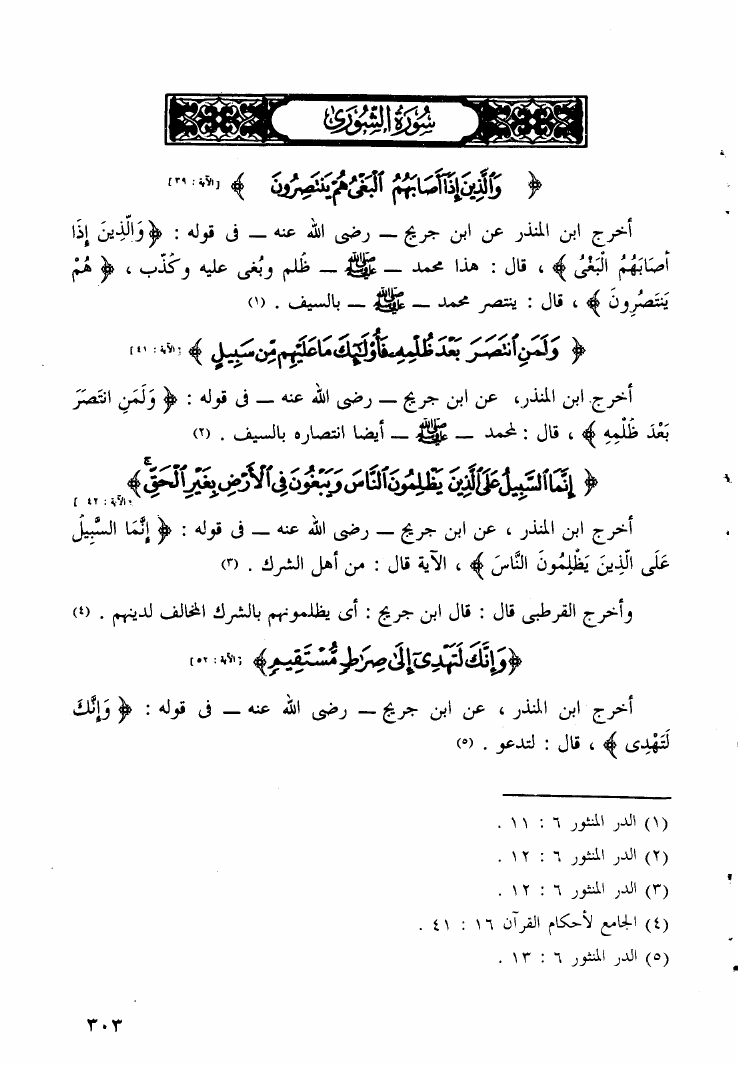 سُورَةُ الشُّورَى
﴿ وَالَّذِينَ إِذَا أَصَابَهُمُ الْبَغْيُ هُمْ يَنتَصِرُونَ ﴾ [الآية : ٣٩]
أخرج ابن المنذر عن ابن جريج – رضى الله عنه – فى قوله : ﴿ وَالَّذِينَ إِذَا
أَصَابَهُمُ الْبَغْىُ ﴾ ، قال : هذا محمد – ﷺ – ظُلم وبُغى عليه وكُذّب ، ﴿ هُمْ
يَنتَصِرُونَ ﴾ ، قال : ينتصر محمد – ﷺ – بالسيف . (١)
﴿ وَلَمَنِ انتَصَرَ بَعْدَ ظُلْمِهِ فَأُولَٰئِكَ مَا عَلَيْهِم مِّن سَبِيلٍ ﴾ [الآية : ٤١]
أخرج ابن المنذر، عن ابن جريج – رضى الله عنه – فى قوله : ﴿ وَلَمَنِ انتَصَرَ
بَعْدَ ظُلْمِهِ ﴾ ، قال : لمحمد – ﷺ – أيضا انتصاره بالسيف . (٢)
﴿ إِنَّمَا السَّبِيلُ عَلَى الَّذِينَ يَظْلِمُونَ النَّاسَ وَيَبْغُونَ فِي الْأَرْضِ بِغَيْرِ الْحَقِّ ﴾
[الآية : ٤٢ ]
أخرج ابن المنذر ، عن ابن جريج – رضى الله عنه – فى قوله : ﴿ إِنَّمَا السَّبِيلُ
عَلَى الَّذِينَ يَظْلِمُونَ النَّاسَ ﴾ ، الآية قال : من أهل الشرك . (٣)
وأخرج القرطبى قال : قال ابن جريج : أى يظلمونهم بالشرك المخالف لدينهم . (٤)
﴿ وَإِنَّكَ لَتَهْدِي إِلَىٰ صِرَاطٍ مُّسْتَقِيمٍ ﴾ [الآية : ٥٢]
أخرج ابن المنذر ، عن ابن جريج – رضى الله عنه – فى قوله : ﴿ وَإِنَّكَ
لَتَهْدِى ﴾ ، قال : لتدعو . (٥)
(١) الدر المنثور ٦ : ١١ .
(٢) الدر المنثور ٦ : ١٢ .
(٣) الدر المنثور ٦ : ١٢ .
(٤) الجامع لأحكام القرآن ١٦ : ٤١ .
(٥) الدر المنثور ٦ : ١٣ .
٣٠٣